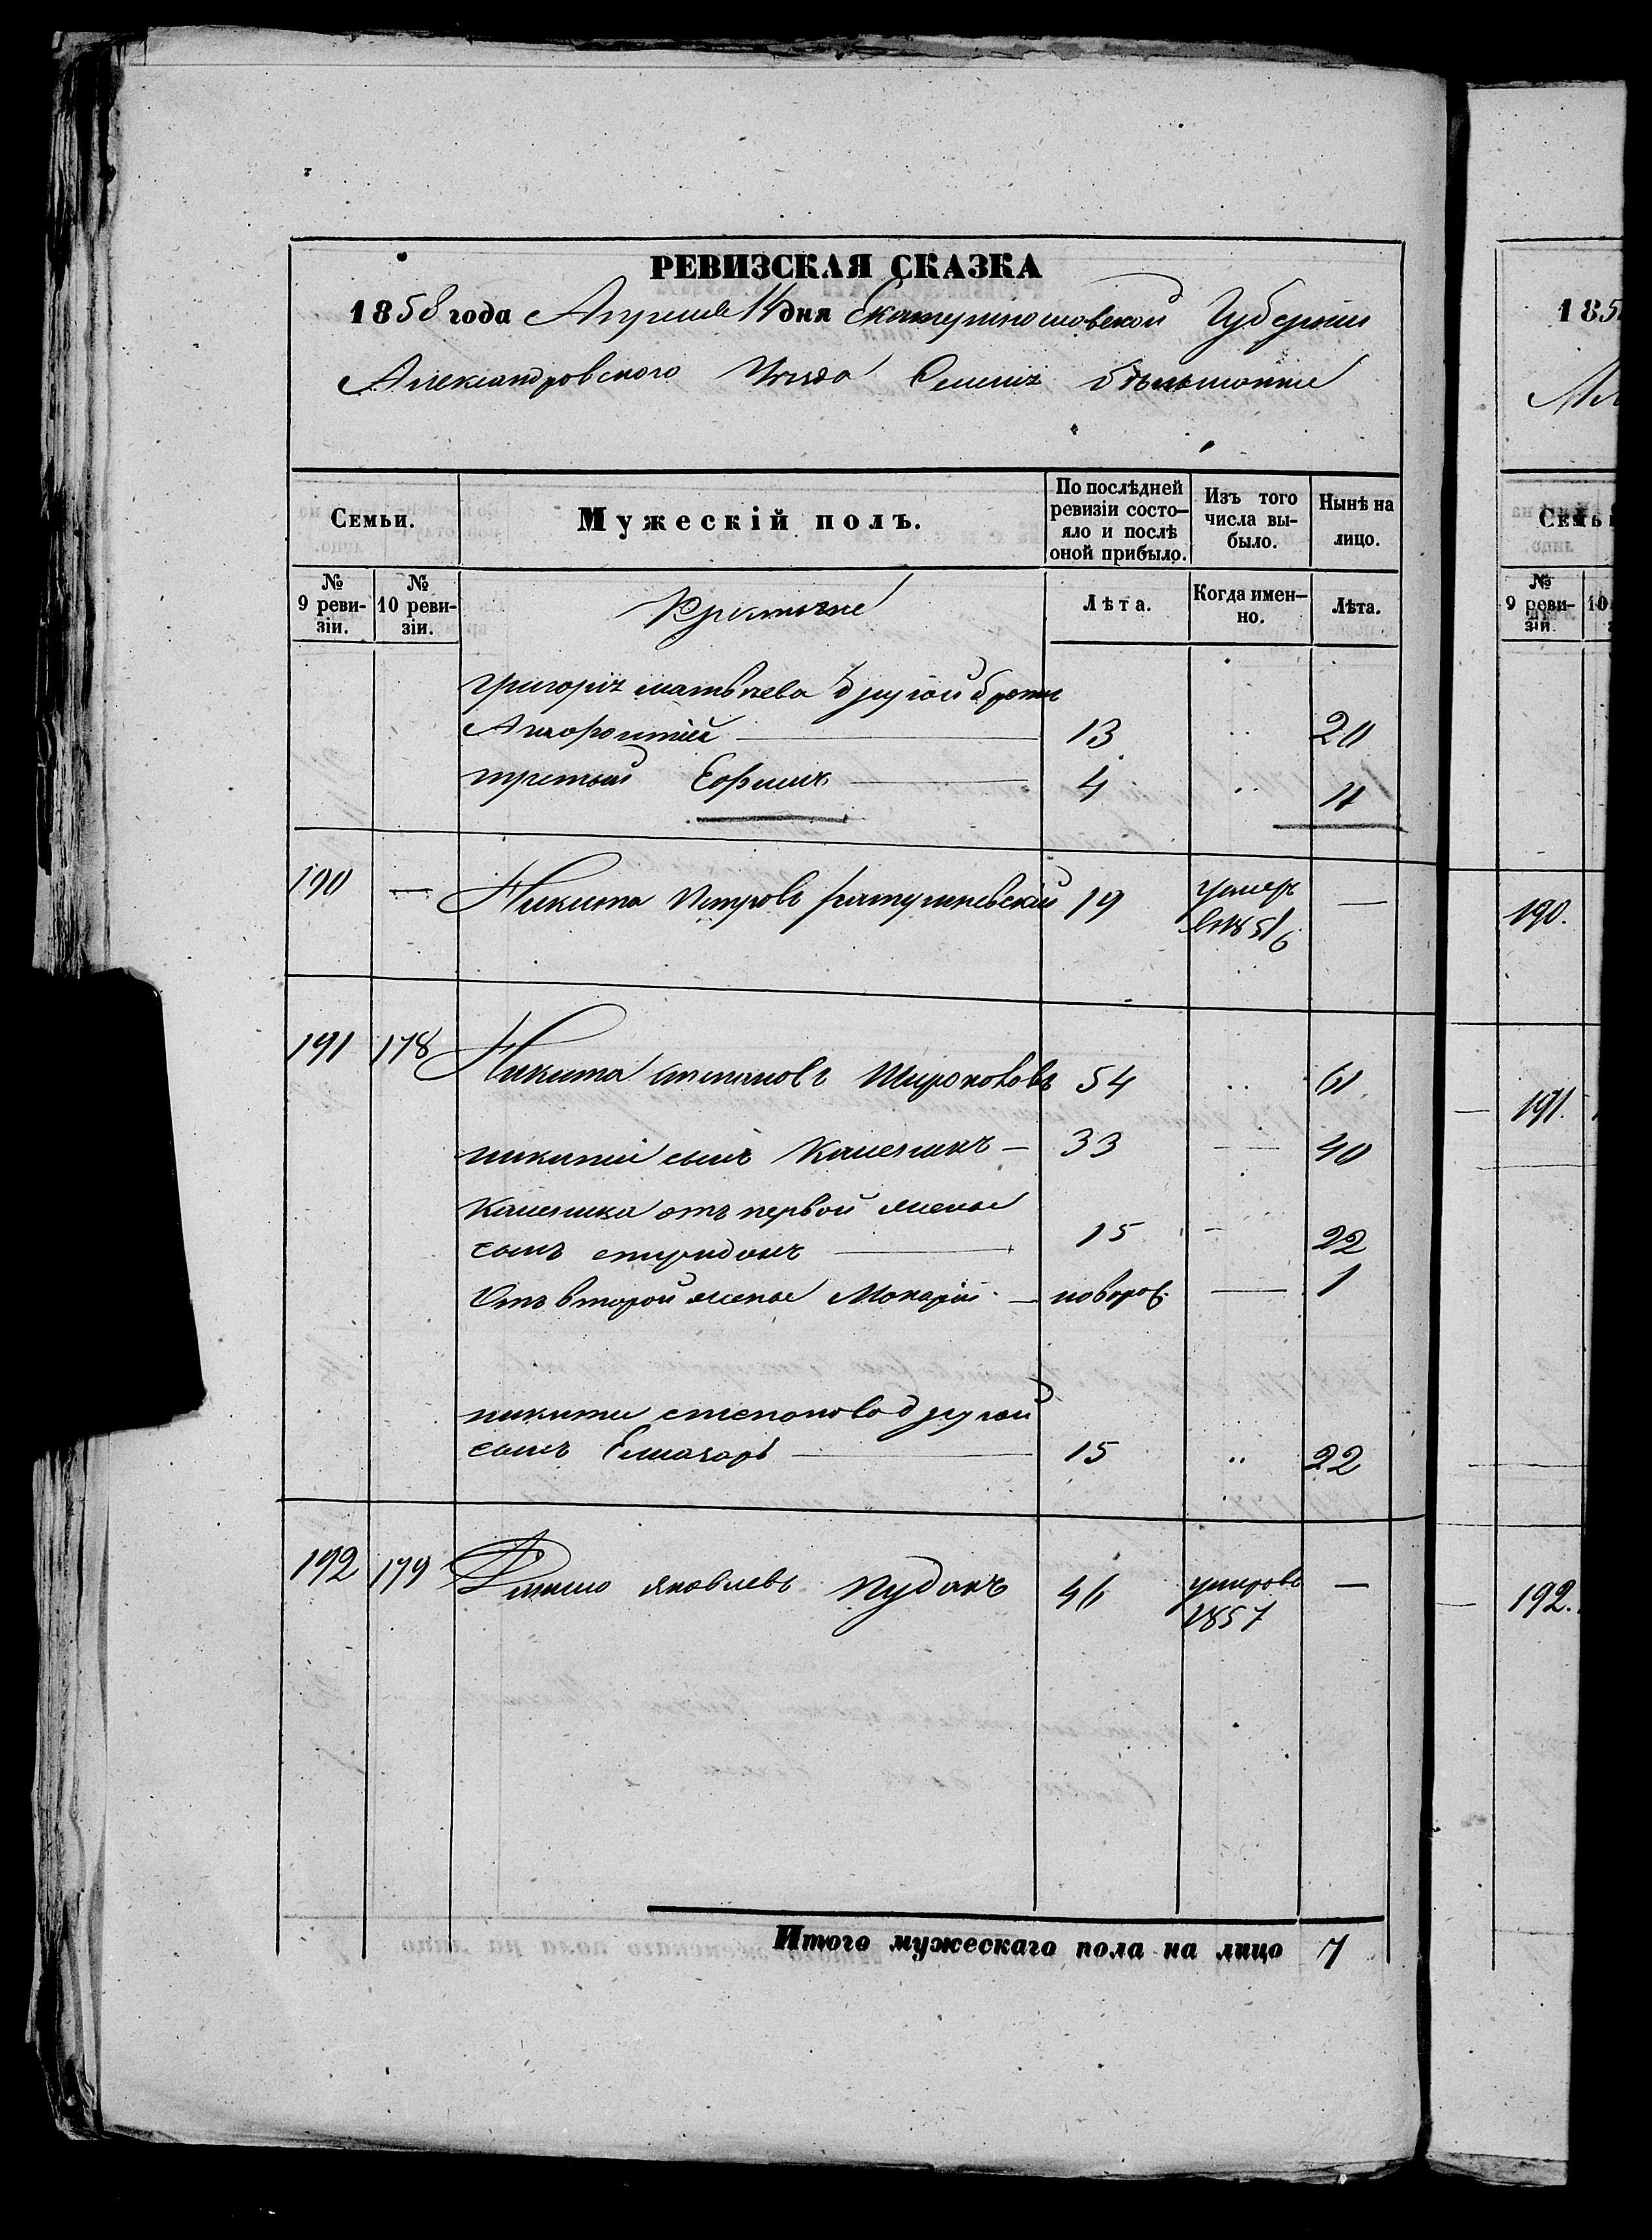 РЕВИЗСКАЯ СКАЗКА
1858 года Апреля 14 дня Екатеринославской Губернии
Александровского Уезда Селения
Семьи.
Мужескій полъ.
По послѣдней ревизіи состо-яло и послѣ оной прибыло.
Изъ того числа вы-было.
Нынѣ на лицо.
№ 9 реви-зіи.
№ 10 реви-зіи.
Лѣта.
Когда имен-но.
Лѣта.
Григорія матвѣева другой братъ
13 20
третий Ефимъ 4 11
190 — Никита Петровъ 19 умеръ —
в 1851/6
191 178 Никита степановъ Широковъ 54 61
никиты сынъ 33 — 40
от первой жены
сынъ спиридонъ 15 - 22
Отъ второй жены Макарій новорож. — 1
никиты степанова другой
сынъ Елиазаръ 15 22
192 179 яковлевъ Пуданъ 46 умеръ в —
1857
Итого мужескаго пола на лицо 7
185
Семьи
№ 9 реви-зіи
10
190.
191.
192.